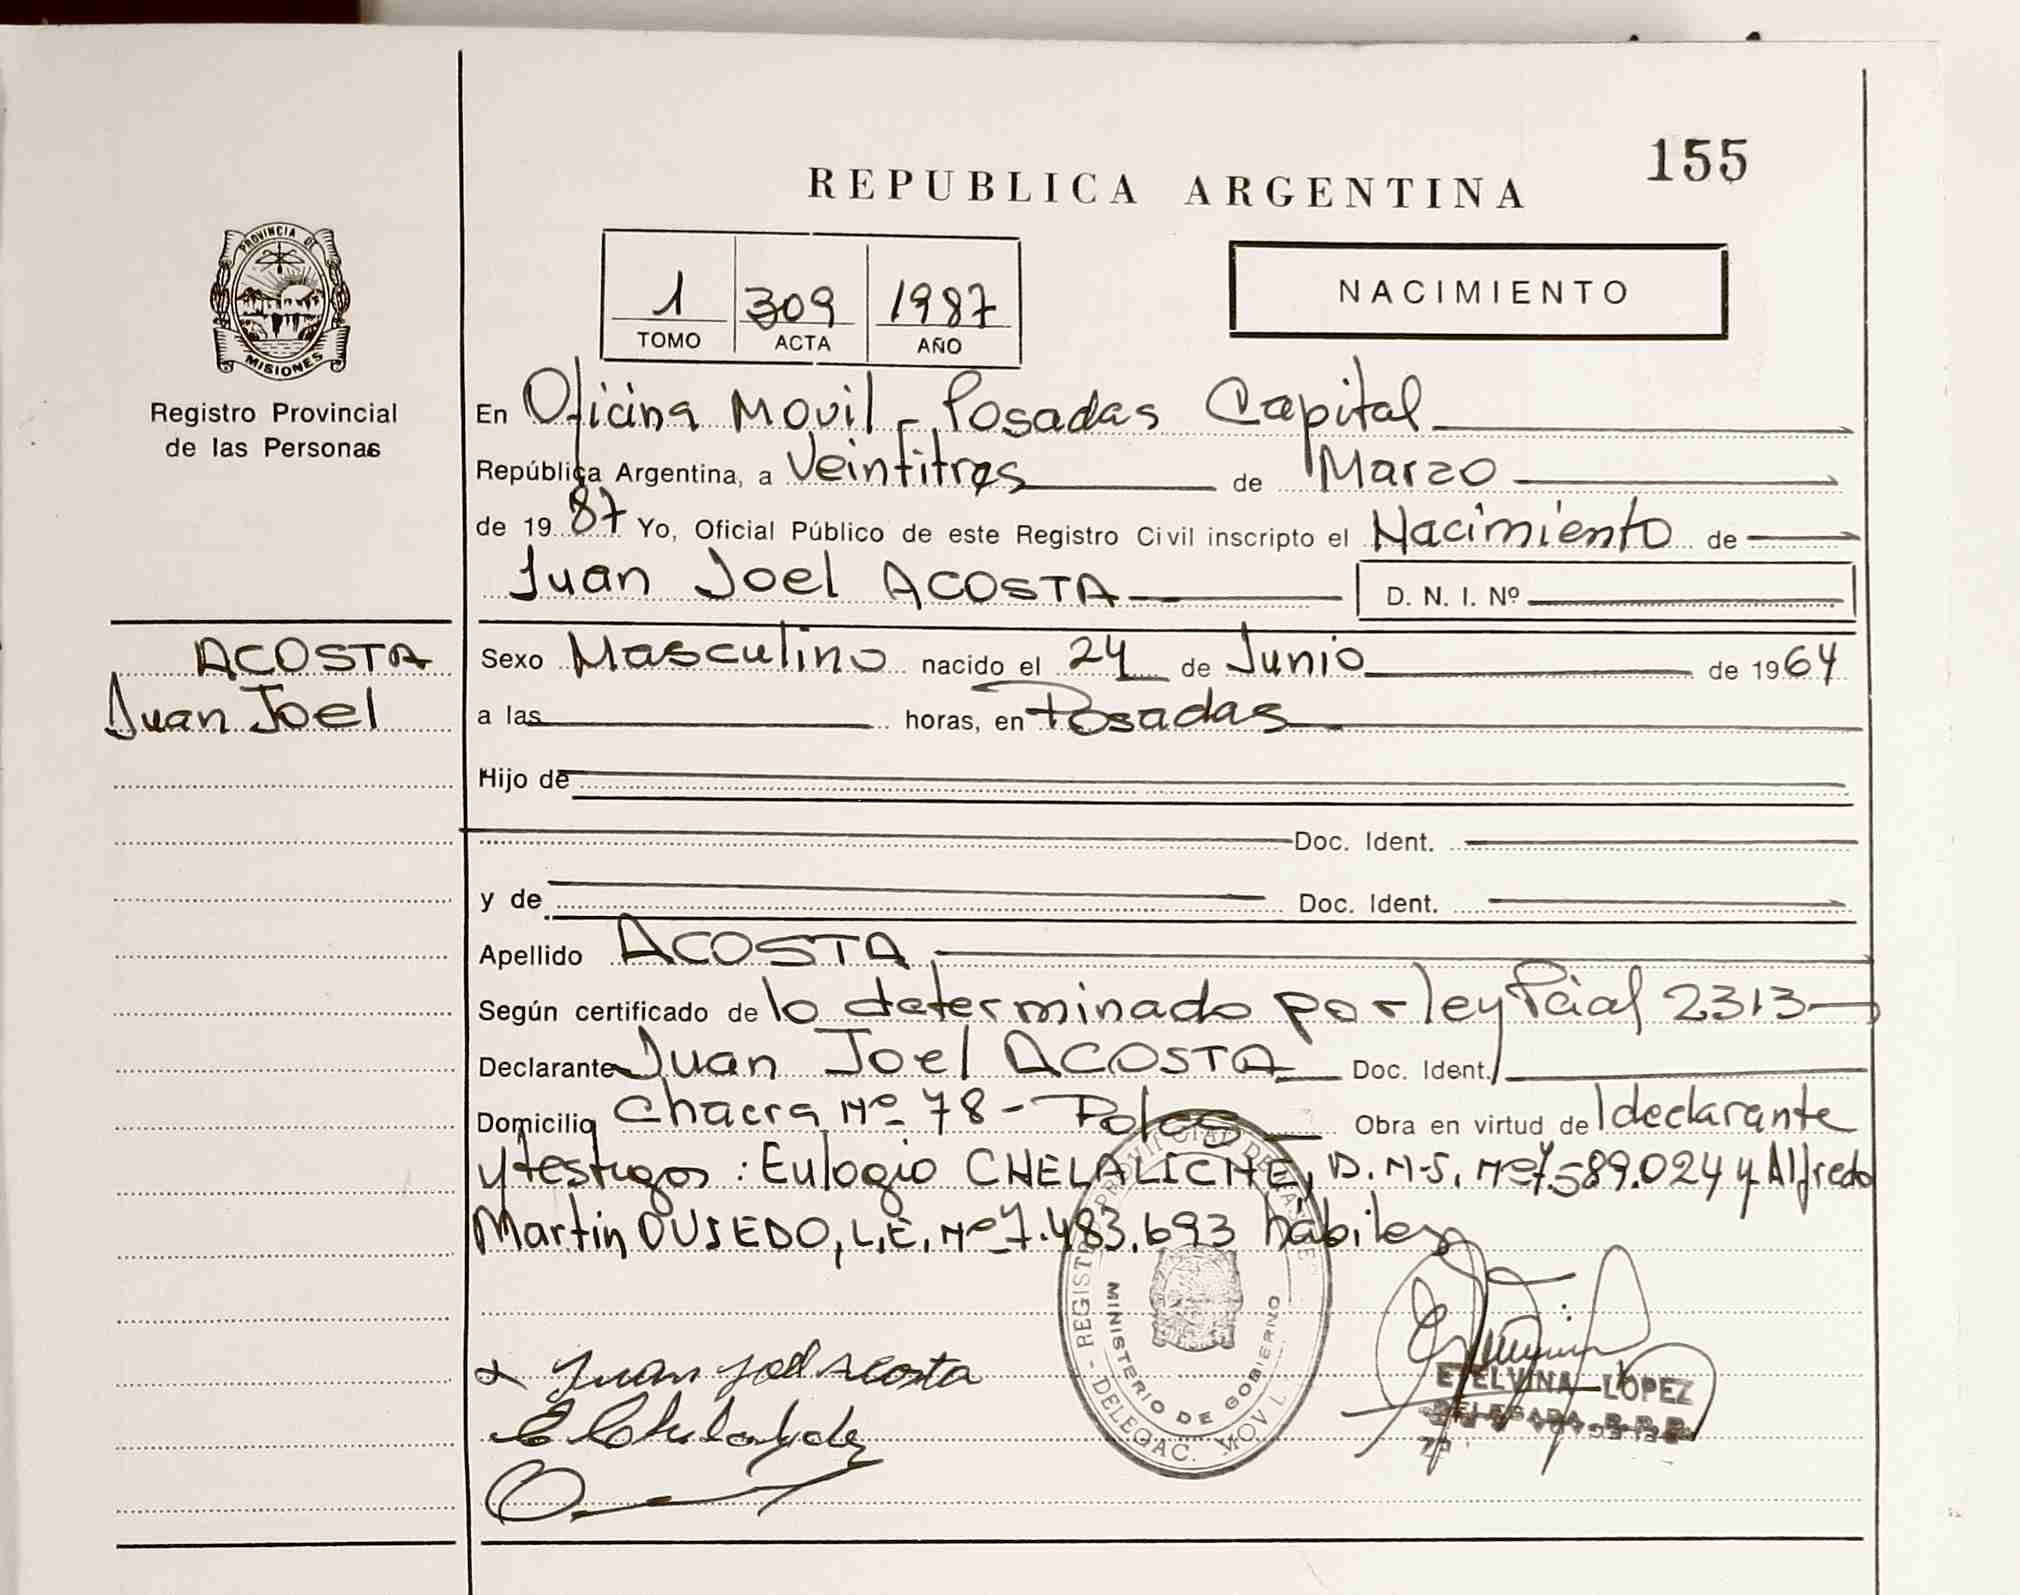 155
REPUBLICA ARGENTINA
PROVINCIA DE
MISIONES
Registro Provincial
de las Personas
1 309 1987
TOMO ACTA AÑO
NACIMIENTO
En Oficina Movil - Posadas Capital
República Argentina, a Veintitres de Marzo
de 19 87 Yo, Oficial Público de este Registro Civil inscripto el Nacimiento de
Juan Joel ACOSTA D. N. I. Nº
ACOSTA
Juan Joel
Sexo Masculino nacido el 24 de Junio de 1964
a las horas, en Posadas
Hijo de
Doc. Ident.
y de Doc. Ident.
Apellido ACOSTA
Según certificado de lo determinado por ley Pcial 2313
Declarante Juan Joel ACOSTA Doc. Ident.
Domicilio Chacra Nº 78 - Obra en virtud de l declarante
y testigos: Eulogio CHELALICHE, D.M.S. Nº 7.589.024 y Alfredo
Martin OVIEDO, L.E. Nº 7.483.693 hábiles
Juan Joel Acosta
REGISTRO PROVINCIAL DE LAS PERSONAS
MINISTERIO DE GOBIERNO
DELEGAC. MOVIL
ETELVINA LOPEZ
DELEGADA